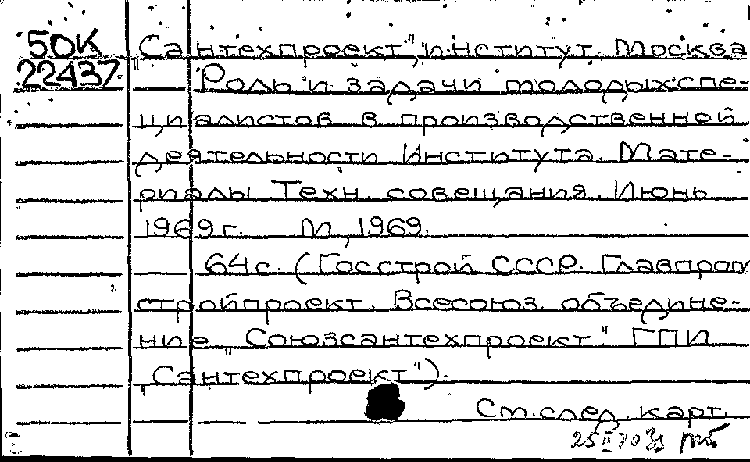 50К
22437
„Сантехпроект", институт. Москва
Роль и задачи молодых спе-
циалистов в производственной
деятельности Института. Мате-
риалы Техн. совещания. Июнь
1969 г. М, 1969.
64 с. (Госстрой СССР. Главпром
стройпроект. Всесоюз. объедине-
ние „Союзсантехпроект." ГПИ
„Сантехпроект").
См. след. карт.
25 II 70